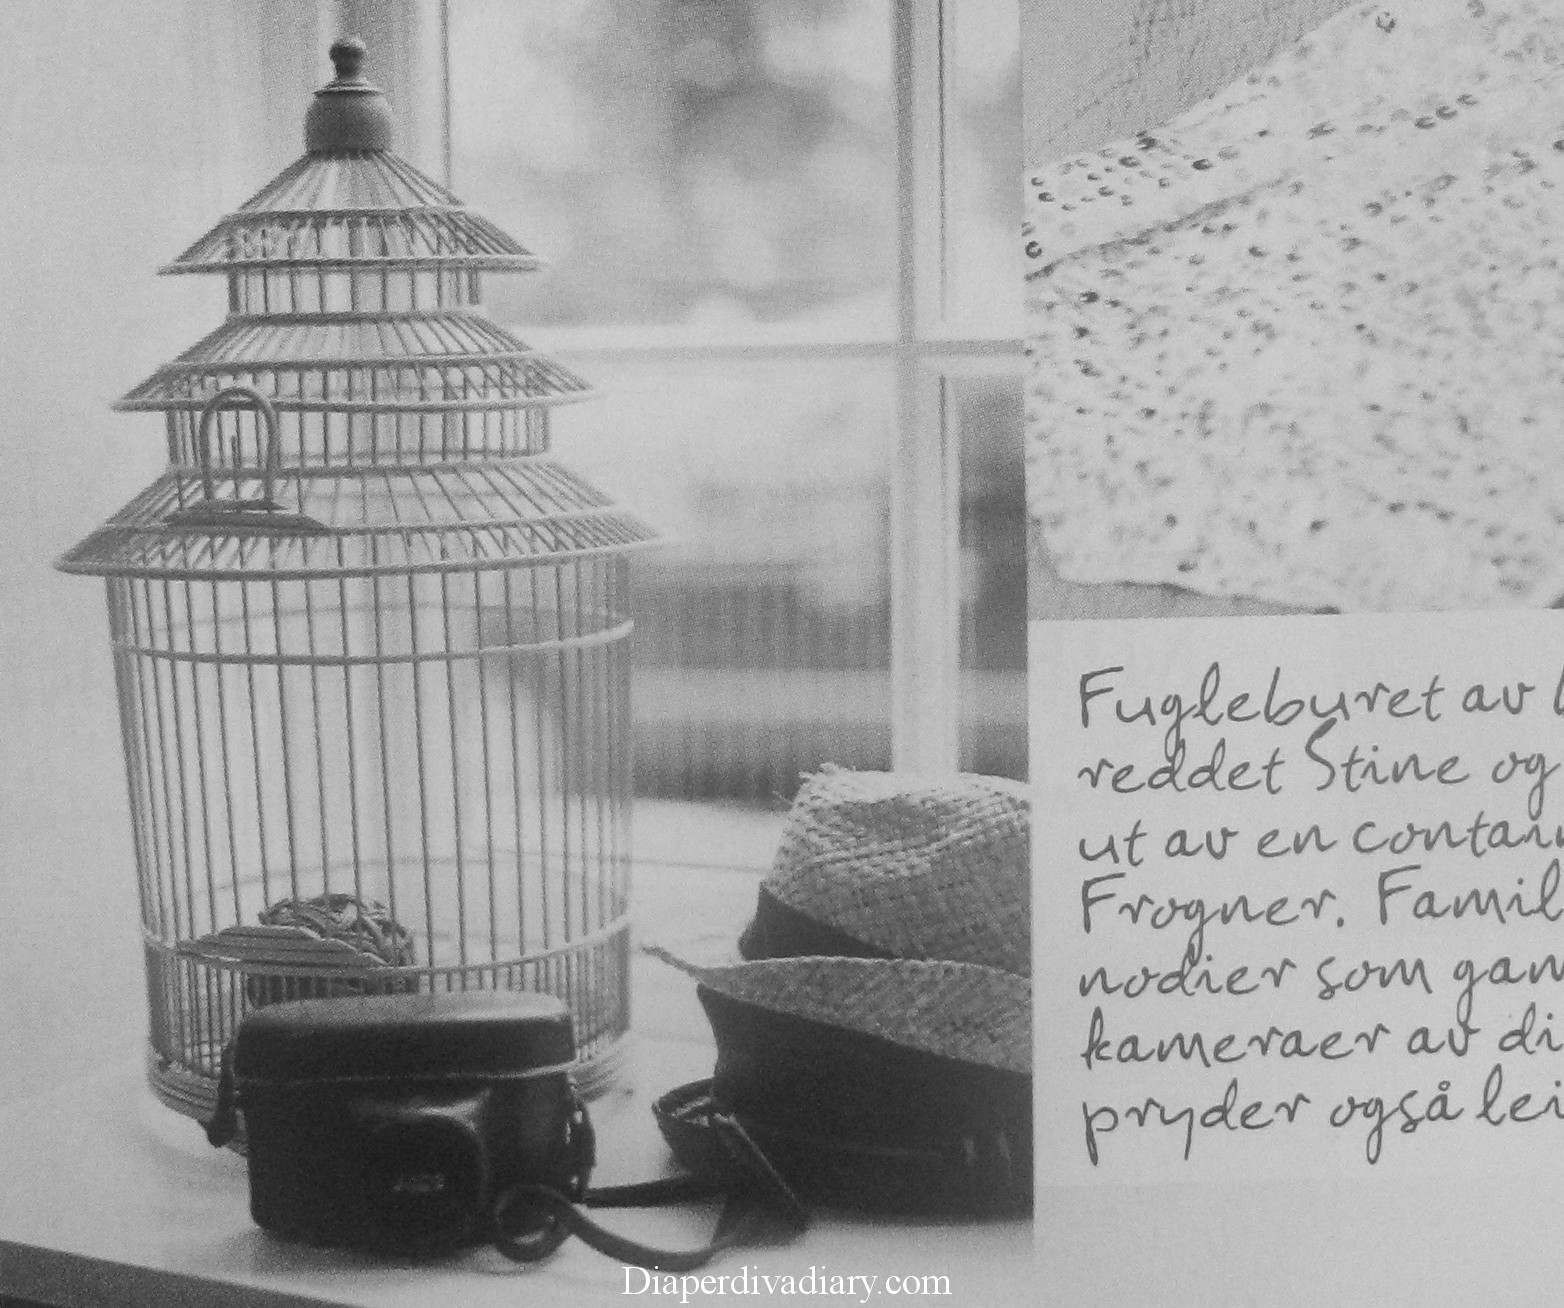 Fugleburet av
reddet Stine og
ut av en
Frogner.
nodier som
kameraer av
pryder også
Diaperdivadiary.com